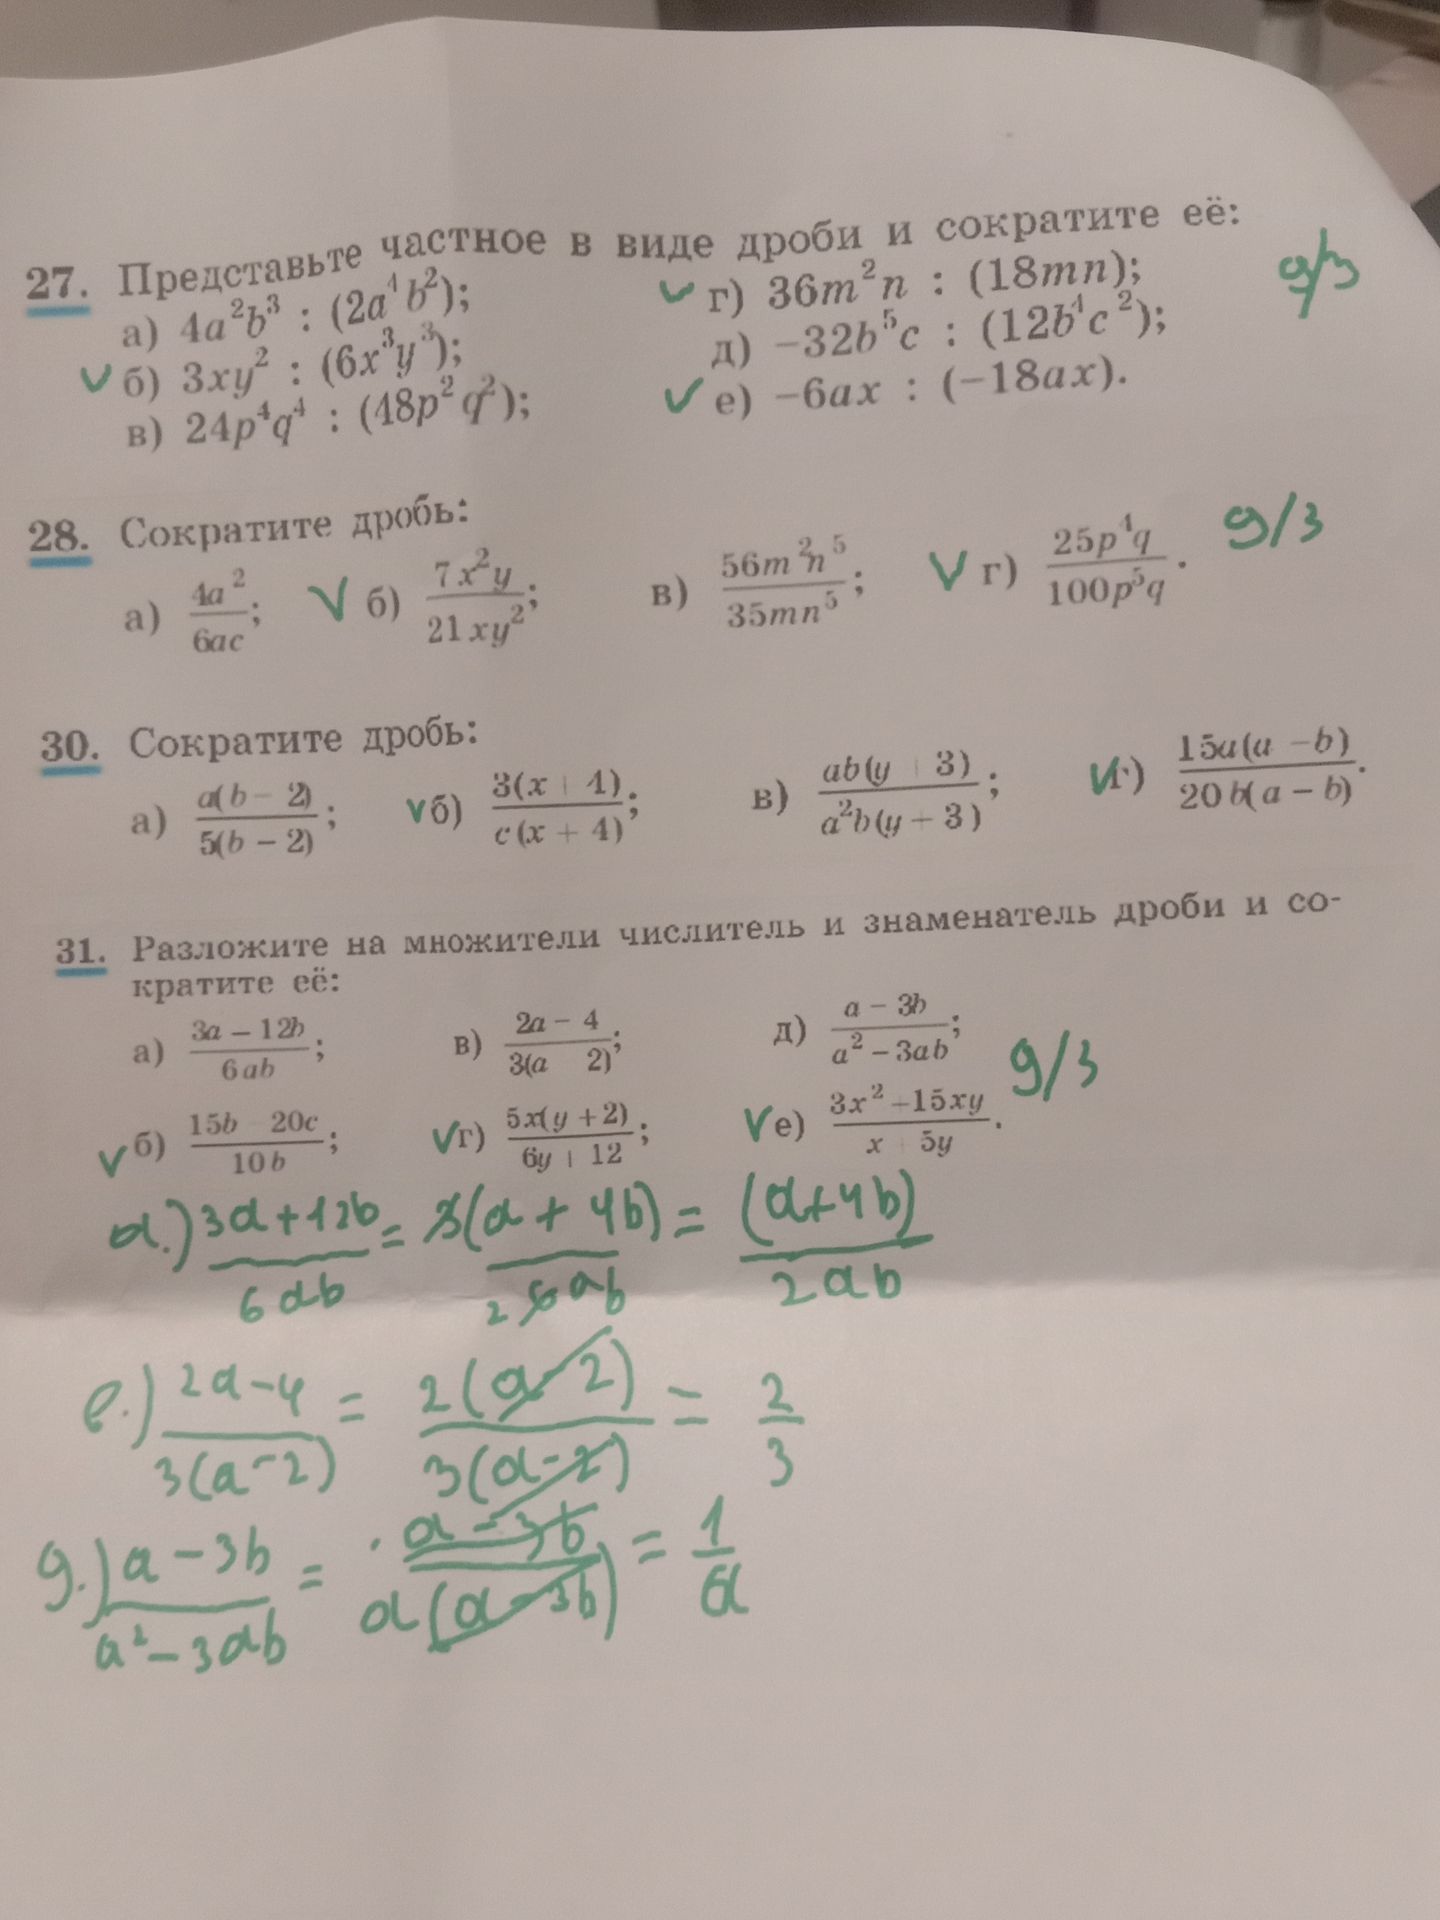 27. Представьте частное в виде дроби и сократите её: д/з
а) 4a²b³ : (2a⁴b²); ✓ г) 36m²n : (18mn);
✓ б) 3xy² : (6x³y³); д) −32b⁵c : (12b⁴c²);
в) 24p⁴q⁴ : (48p²q²); ✓ е) −6ax : (−18ax).
28. Сократите дробь: д/з
а) 4a²/6ac; ✓ б) 7x²y/21xy²; в) 56m²n⁵/35mn⁵; ✓ г) 25p⁴q/100p⁵q.
30. Сократите дробь:
а) a(b − 2)/5(b − 2); ✓ б) 3(x + 4)/c(x + 4); в) ab(y + 3)/a²b(y + 3); ✓ г) 15a(a − b)/20b(a − b).
31. Разложите на множители числитель и знаменатель дроби и со-
кратите её:
а) 3a − 12b/6ab; в) 2a − 4/3(a 2); д) a − 3b/a² − 3ab; д/з
✓ б) 15b 20c/10b; ✓ г) 5x(y + 2)/6y + 12; ✓ е) 3x² + 15xy/x + 5y.
а.) 3a+12b/6ab = 3(a + 4b)/2 6ab = (a+4b)/2ab
в.) 2a−4/3(a−2) = 2(a−2)/3(a−2) = 2/3
д.) a−3b/a²−3ab = a−3b/a(a−3b) = 1/a